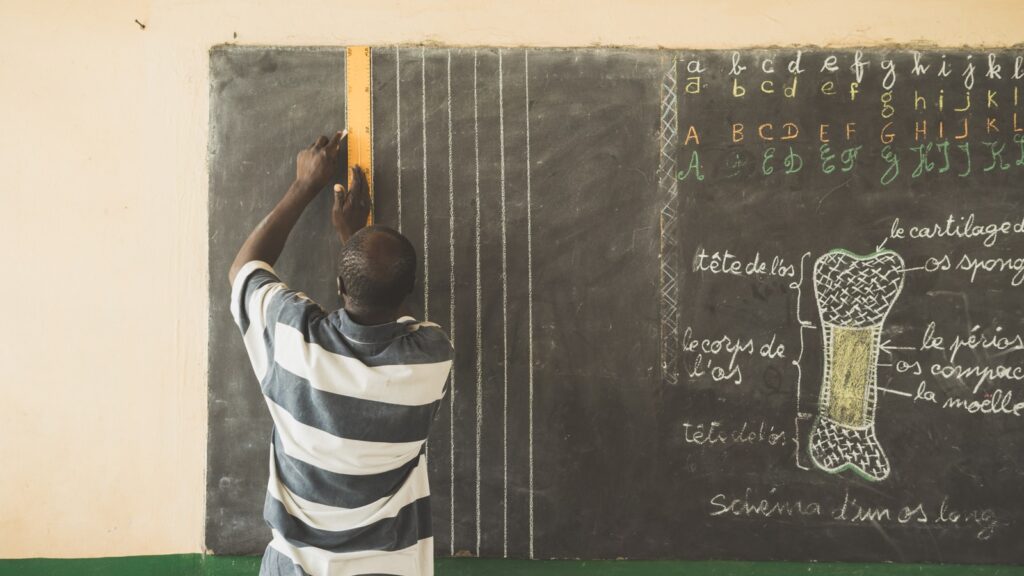 a b c d e f g h i j k l
a b c d e f g h i j k l
A B C D E F G H I J K L
A D E F G H I J K
le cartilage d
tête de l'os
os spong
le corps de
l'os
le périos
os compac
la moëlle
tête de l'os
Schéma d'un os long